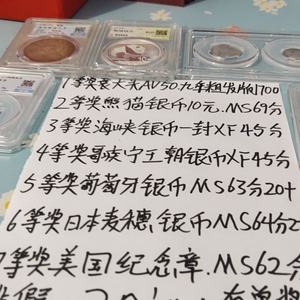 1等奖袁大头AU50.九年粗发版1700
2等奖熊猫银币10元.MS69分
3等奖海峡银币一封XF45分
4等奖哥疾宁王朝银币XF45分
5等奖葡萄牙银币MS63分20+
6等奖日本麦穗银币MS64分2
7等奖美国纪念章.MS62分